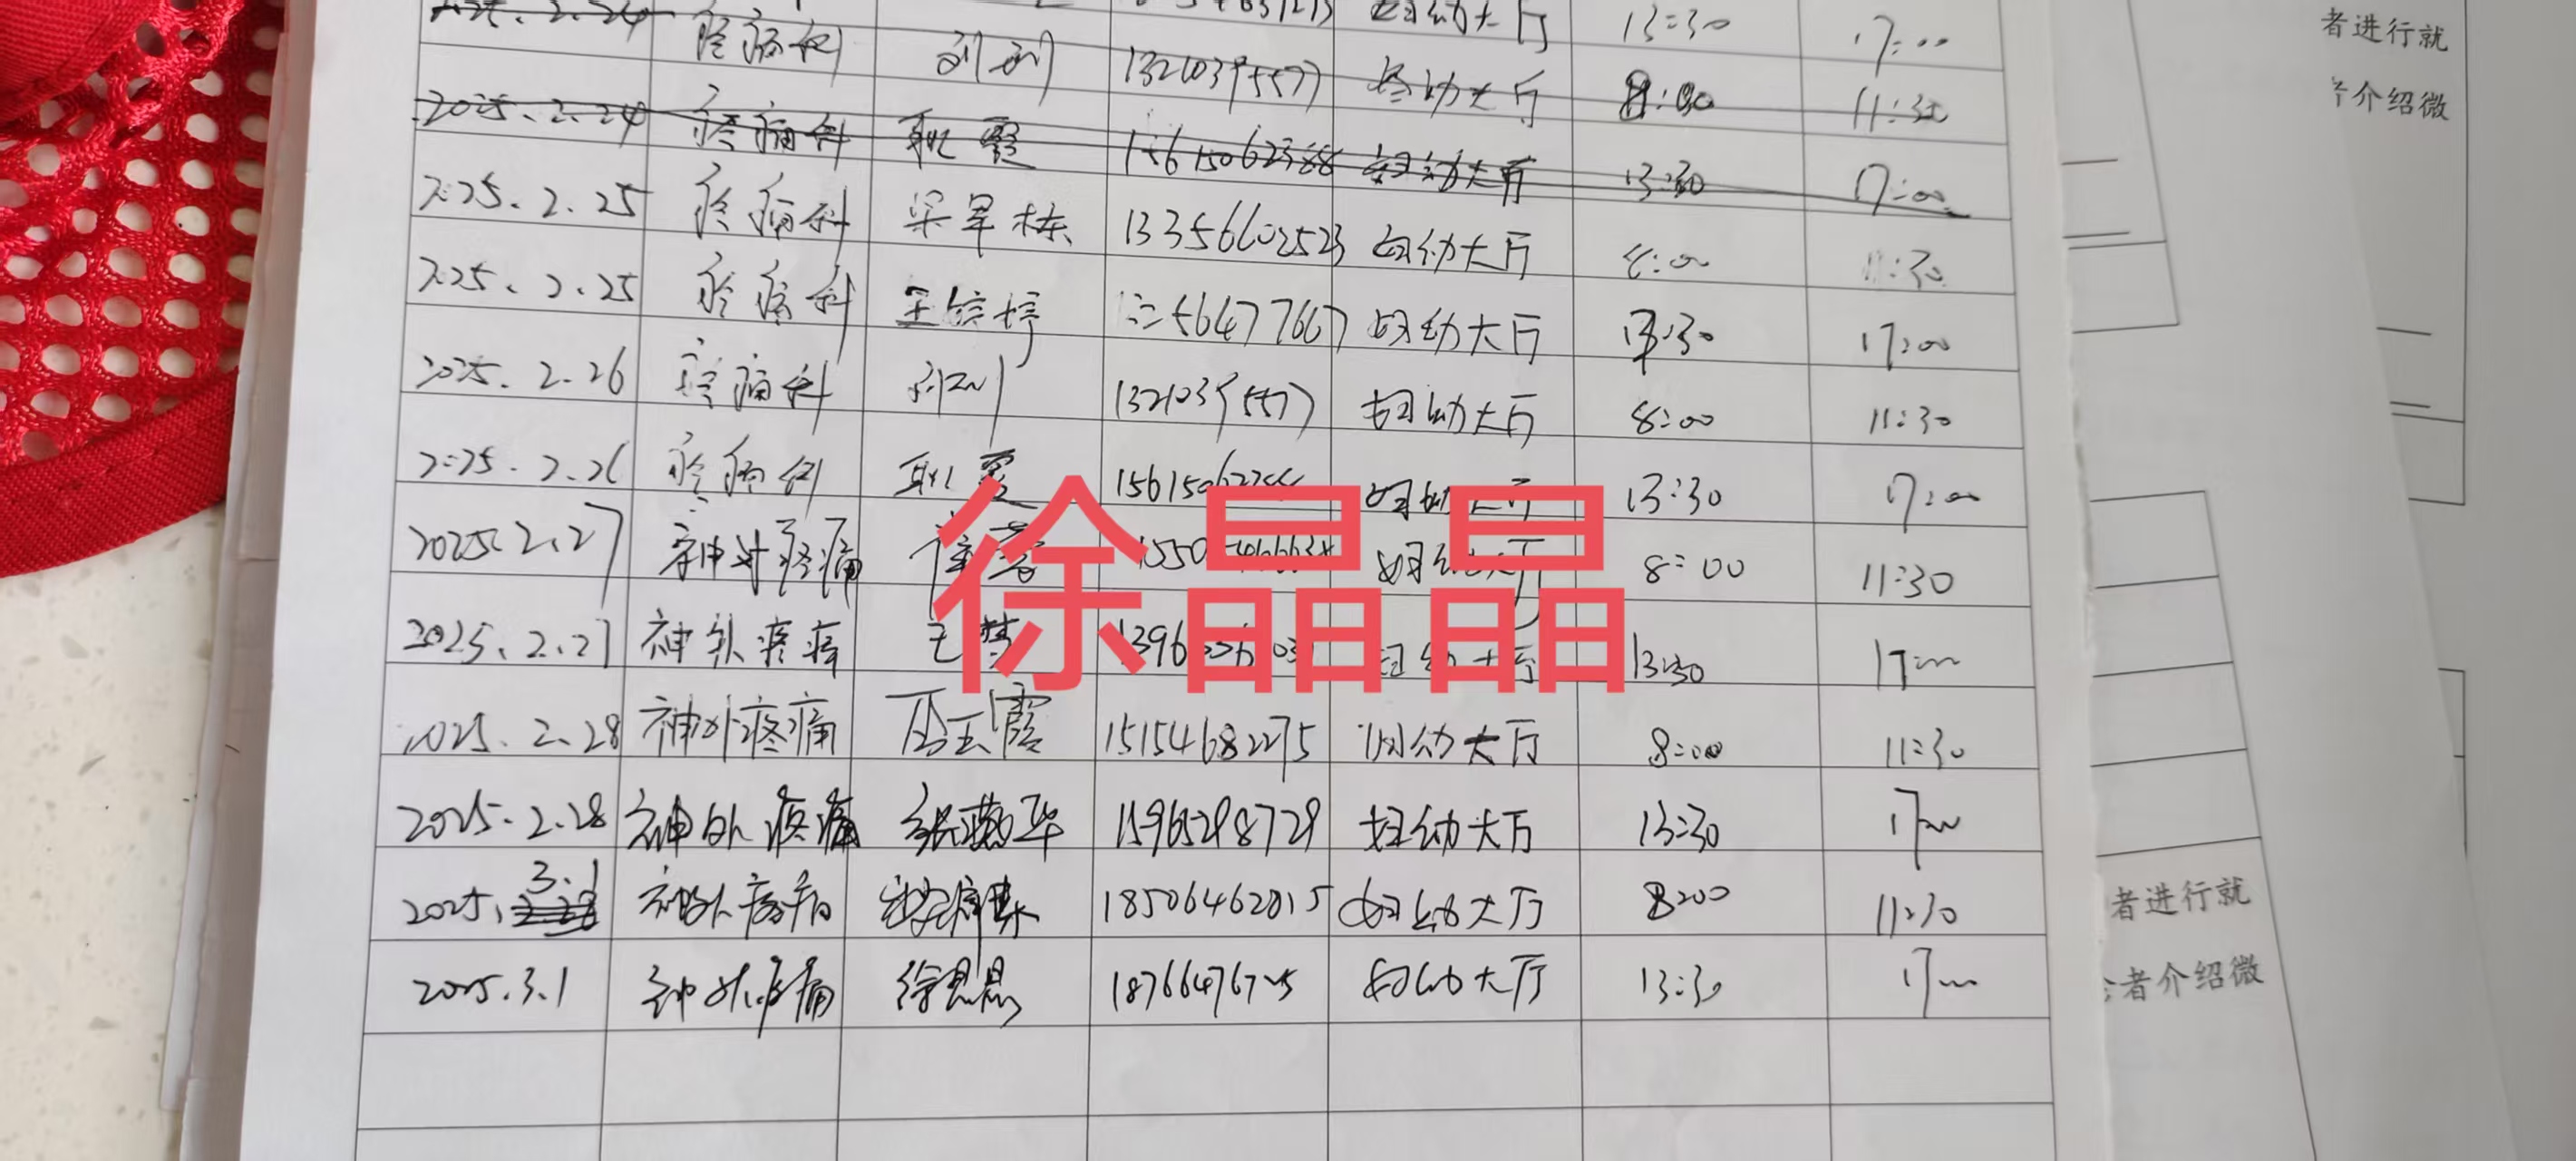 疼痛科 刘 妇幼大厅 13:30 17:00
13210395577 妇幼大厅 8:00 11:30
2025.2.24 疼痛科 耿霞 15615062388 妇幼大厅 13:30 17:00
2025.2.25 疼痛科 梁早栋 13356602523 妇幼大厅 8:00 11:30
2025.2.25 疼痛科 妇幼大厅 13:30 17:00
2025.2.26 疼痛科 13210395577 妇幼大厅 8:00 11:30
2025.2.26 疼痛科 耿霞 妇幼大厅 13:30 17:00
2025.2.27 神外疼痛 妇幼大厅 8:00 11:30
徐晶晶
2025.2.27 神外疼痛 妇幼大厅 13:30 17:00
2025.2.28 神外疼痛 岳玉霞 15154682275 妇幼大厅 8:00 11:30
2025.2.28 神外疼痛 张燕华 15965298729 妇幼大厅 13:30 17:00
2025.3.1 神外疼痛 18506462015 妇幼大厅 8:00 11:30
2025.3.1 神外疼痛 徐晶晶 妇幼大厅 13:30 17:00
者进行就
介绍微
者进行就
者介绍微